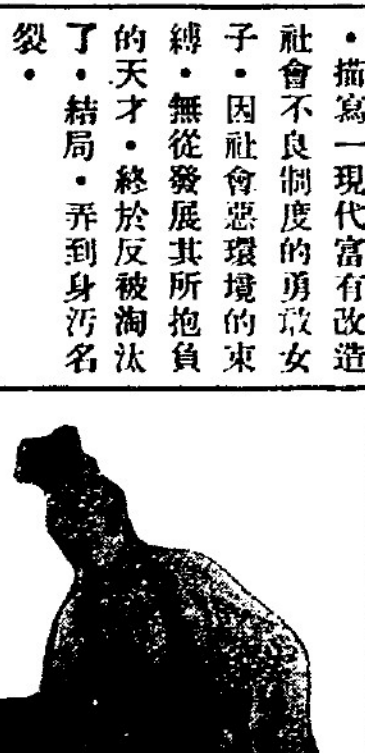 ・描寫一現代富有改造
社會不良制度的勇敢女
子・因社會惡環境的束
縛・無從發展其所抱負
的天才・終於反被淘汰
了・結局・弄到身汚名
裂・